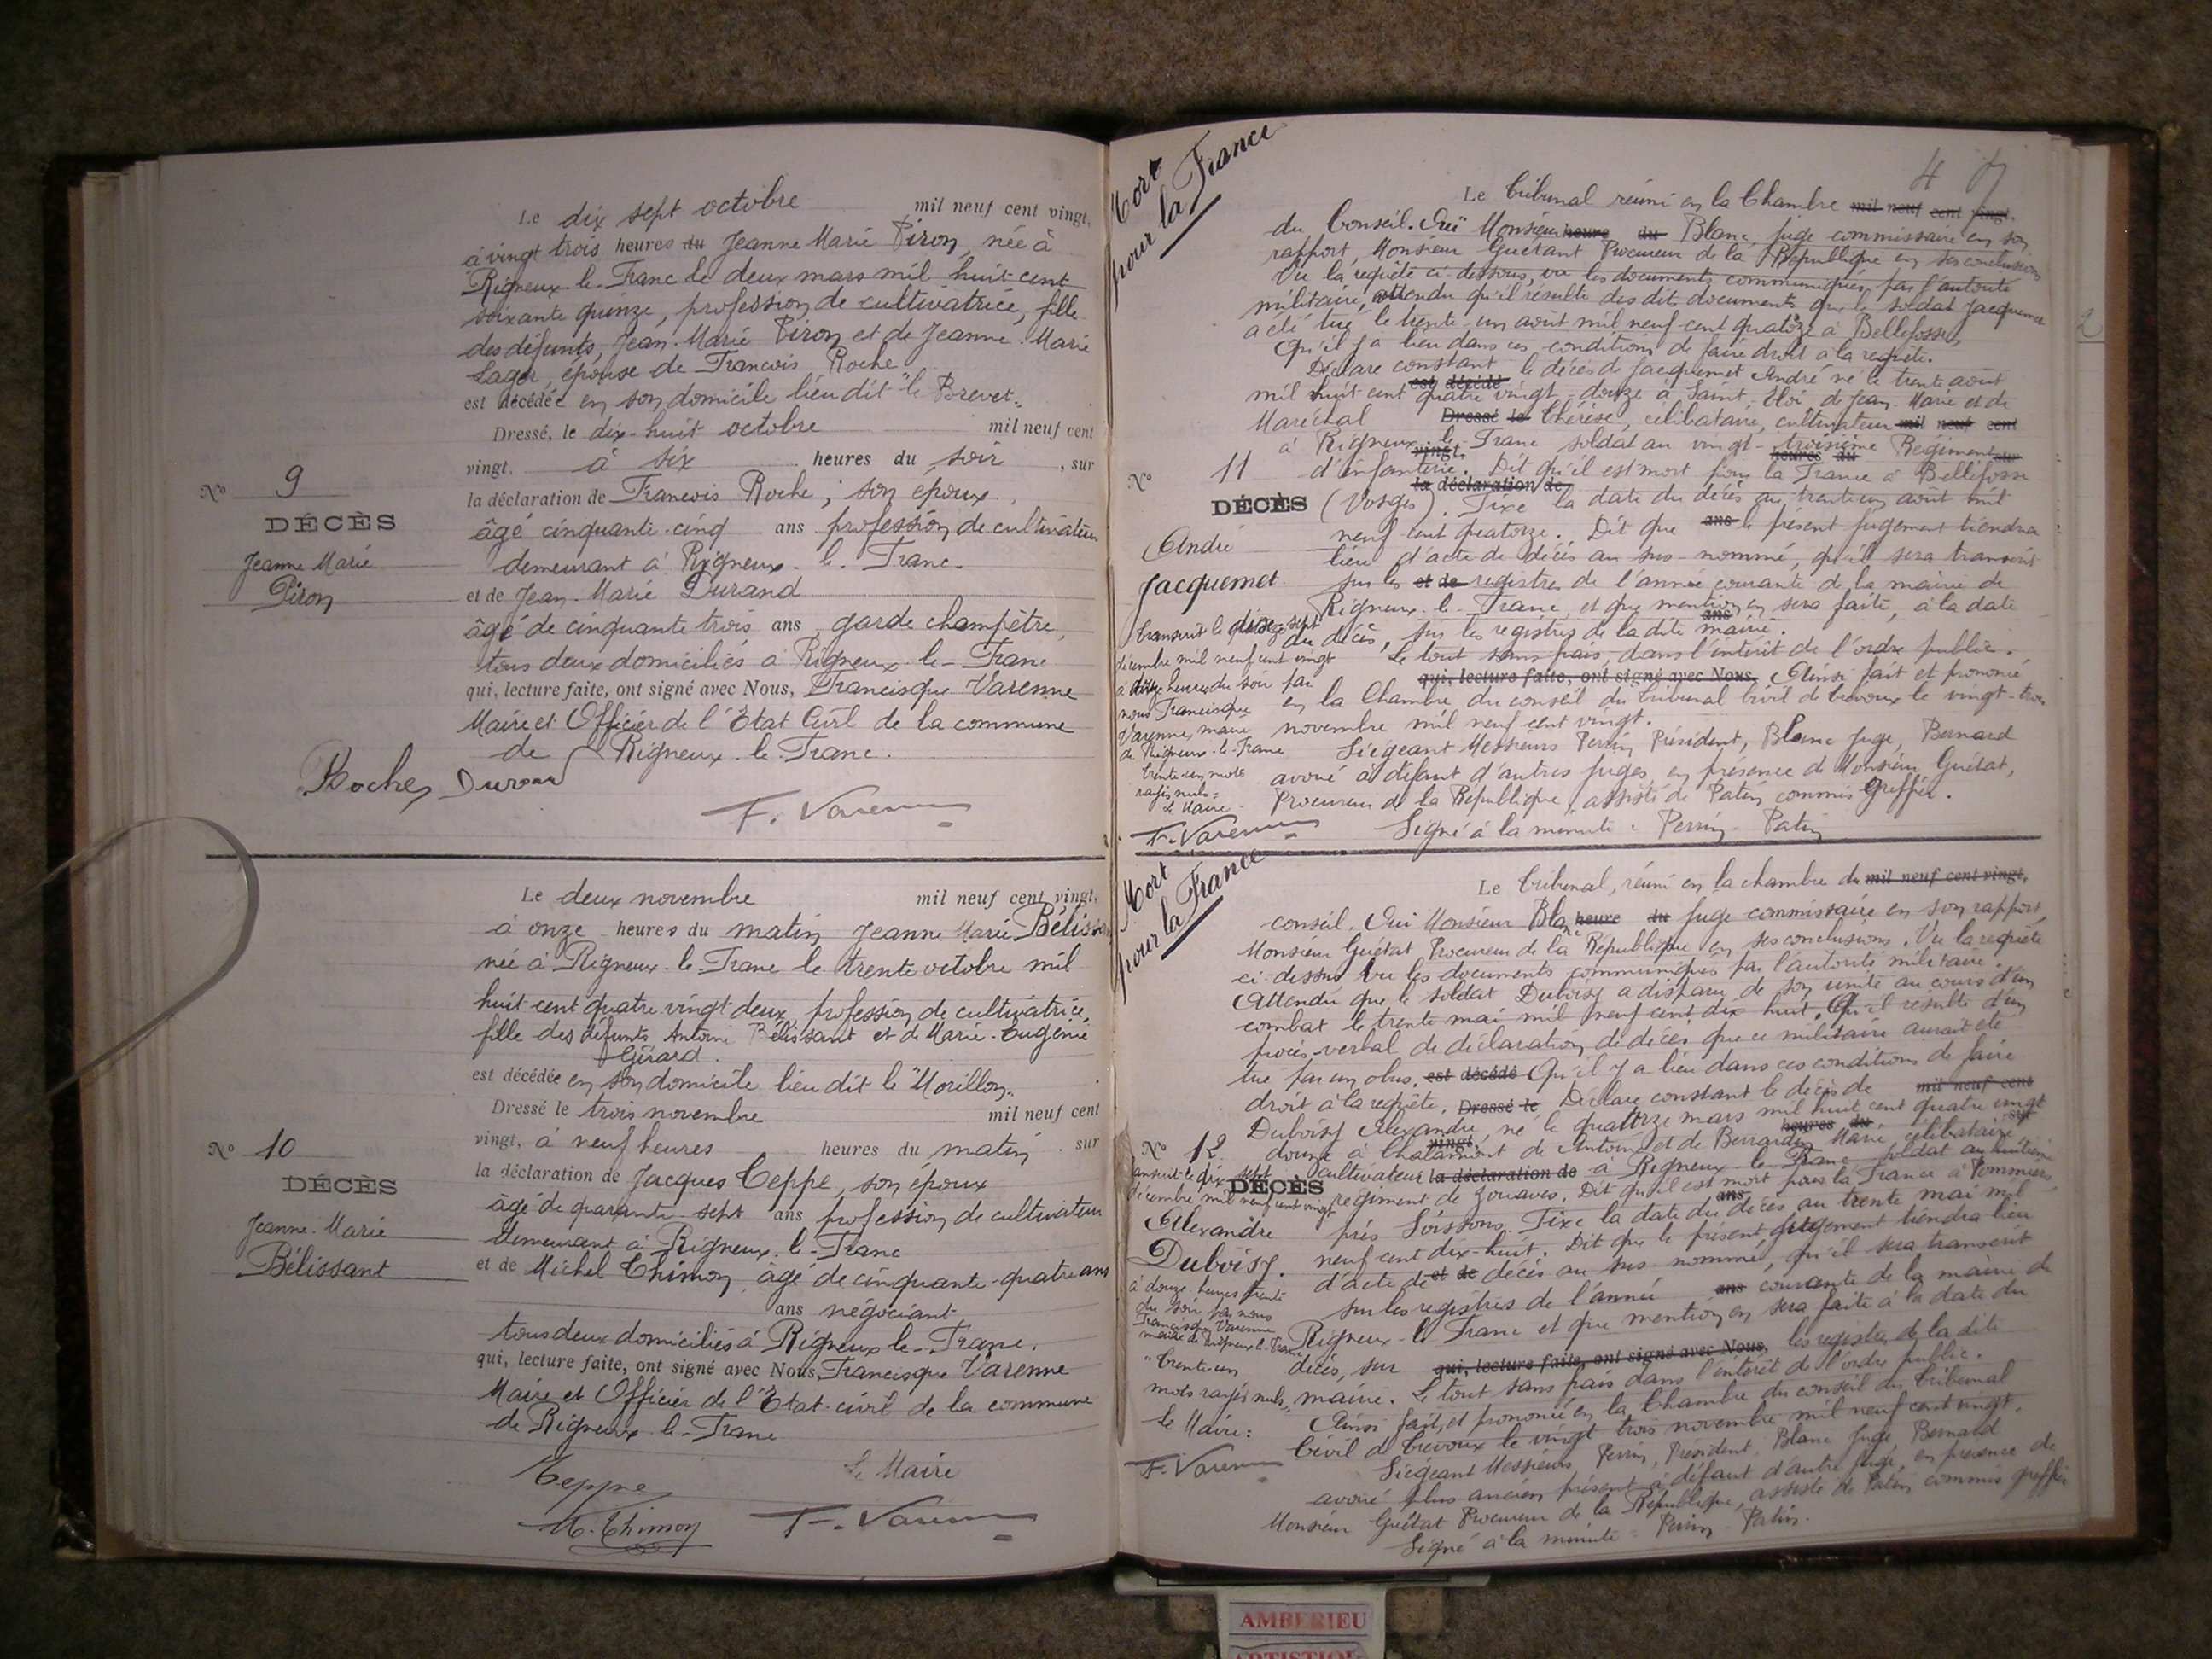 Le dix sept octobre mil neuf cent vingt,
à vingt trois heures du Jeanne Marie Piron, née à
Rigneux-le-Franc le deux mars mil huit-cent
soixante quinze, profession de cultivatrice, fille
des défunts, Jean-Marie Piron et de Jeanne-Marie
épouse de Francois Roche
est décédée en son domicile lieu dit "le Brevet"
Dressé, le dix-huit octobre mil neuf cent
vingt, à six heures du soir, sur
la déclaration de Francois Roche, son époux,
âgé cinquante-cinq ans profession de cultivateur
demeurant à Rigneux-le-Franc.
et de Jean-Marie Durand
âgé de cinquante trois ans, garde champêtre,
tous deux domiciliés à Rigneux-le-Franc
qui, lecture faite, ont signé avec Nous, Francisque Varenne
Maire et Officier de l'Etat Civil de la commune
de Rigneux-le-Franc.
Roche Durand
F. Varenne
N° 9
DÉCÈS
Jeanne Marie
Piron
Le deux novembre mil neuf cent vingt,
à onze heures du matin Jeanne Marie Béliss
née à Rigneux-le-Franc le trente octobre mil
huit cent quatre vingt deux, profession de cultivatrice,
fille des défunts Antoine Bélissant et de Marie-Eugénie
Gérard.
est décédée en son domicile lieu dit le "Morillon"
Dressé le trois novembre mil neuf cent
vingt, à neuf heures heures du matin sur
la déclaration de Jacques Teppe, son époux
âgé de quarante-sept ans profession de cultivateur
demeurant à Rigneux-le-Franc
et de Michel Thimon, âgé de cinquante-quatre ans
ans négociant
tous deux domiciliés à Rigneux-le-Franc,
qui, lecture faite, ont signé avec Nous, Francisque Varenne
Maire et Officier de l'Etat-civil de la commune
de Rigneux-le-Franc
Teppe Le Maire
M. Thimon F. Varenne
N° 10
DÉCÈS
Jeanne-Marie
Bélissant
Mort
pour la France
4
Le Tribunal réuni en la Chambre mil neuf cent vingt.
du Conseil. Ouï Monsieur heure du Blanc, juge commissaire en son
rapport, Monsieur Guétant Procureur de la République en ses conclusions
Vu la requête ci-dessous, vu les documents communiqués par l'autorité
militaire, attendu qu'il résulte des dit documents que le soldat Jacquemet
a été tué le trente-un août mil neuf cent quatorze à Bellefosse,
Qu'il y a lieu dans ces conditions de faire droit à la requête.
Déclare constant le décès de Jacquemet André né le trente août
est décédé
mil huit cent quatre vingt-douze à Saint-Eloi de Jean-Marie et de
Maréchal Dressé le Thérèse, célibataire, cultivateur mil neuf cent
à Rigneux-le-Franc soldat au vingt-troisième Régiment sur
vingt, heures du
d'infanterie. Dit qu'il est mort pour la France à Bellefosse
la déclaration de
(Vosges). Fixe la date du décès au trente un août mil
neuf cent quatorze. Dit que ans le présent jugement tiendra
lieu d'acte de décès au sus-nommé, qu'il sera transcrit
sur les et de registres de l'année courante de la mairie de
Rigneux-le-Franc, et que mention en sera faite, à la date
ans
du décès, sur les registres de la dite mairie.
Le tout sans frais, dans l'intérêt de l'ordre public.
qui, lecture faite, ont signé avec Nous, Ainsi fait et prononcé
en la Chambre du conseil du Tribunal Civil de Trévoux le vingt-trois
novembre mil neuf cent vingt.
Siégeant Messieurs Perrin Président, Blanc Juge, Bernard
avoué à défaut d'autres juges, en présence de Monsieur Guétat,
Procureur de la République, assisté de Patin commis Greffier.
Signé à la minute: Perrin-Patin
N° 11
DÉCÈS
André
Jacquemet
transcrit le dix sept
décembre mil neuf cent vingt
à heures du soir par
nous Francisque
Varenne, maire
de Rigneux-le-Franc
trente-un mots
rayés nuls
Le Maire
F. Varenne
Mort
pour la France
Le Tribunal, réuni en la chambre du mil neuf cent vingt,
conseil. Oui Monsieur Blanc heure du juge commissaire en son rapport,
Monsieur Guétat Procureur de la République en ses conclusions. Vu la requête
ci-dessus Vu les documents communiqués par l'autorité militaire.
Attendu que le soldat Duboisy a disparu de son unité au cours d'un
combat le trente mai mil neuf cent dix huit. Qu'il résulte d'un
procès-verbal de déclaration de décès que ce militaire aurait été
tué par un obus. est décédé Qu'il y a lieu dans ces conditions de faire
droit à la requête. Dressé le Déclare constant le décès de mil neuf cent
Duboisy Alexandre, né le quatorze mars mil huit cent quatre vingt
vingt, heures du sur
douze à Chalamont de Antoine et de Bernardin Marie célibataire
cultivateur la déclaration de à Rigneux-le-Franc soldat au huitième
régiment de zouaves. Dit qu'il est mort pour la France à Pommiers
ans
près Soissons. Fixe la date du décès au trente mai mil
neuf cent dix-huit. Dit que le présent jugement tiendra lieu
d'acte de et de décès au sus-nommé, qu'il sera transcrit
sur les registres de l'année ans courante de la mairie de
Rigneux-le-Franc et que mention en sera faite à la date du
décès, sur qui, lecture faite, ont signé avec Nous, les registres de la dite
mairie. Le tout sans frais dans l'intérêt de l'ordre public.
Ainsi fait, et prononcé en la Chambre du conseil du Tribunal
Civil de Trévoux le vingt trois novembre mil neuf cent vingt.
Siégeant Messieurs Perrin, Président, Blanc Juge Bernard
avoué plus ancien présent à défaut d'autre juge, en présence de
Monsieur Guétat Procureur de la République, assisté de Patin commis greffier
Signé à la minute: Perrin-Patin.
N° 12
transcrit le dix sept
DÉCÈS
décembre mil neuf cent vingt
Alexandre
Duboisy.
à douze heures trente
du soir par nous
Francisque Varenne
maire de Rigneux-le-Franc
"trente un
mots rayés nuls"
Le Maire:
F. Varenne
2
AMBERIEU